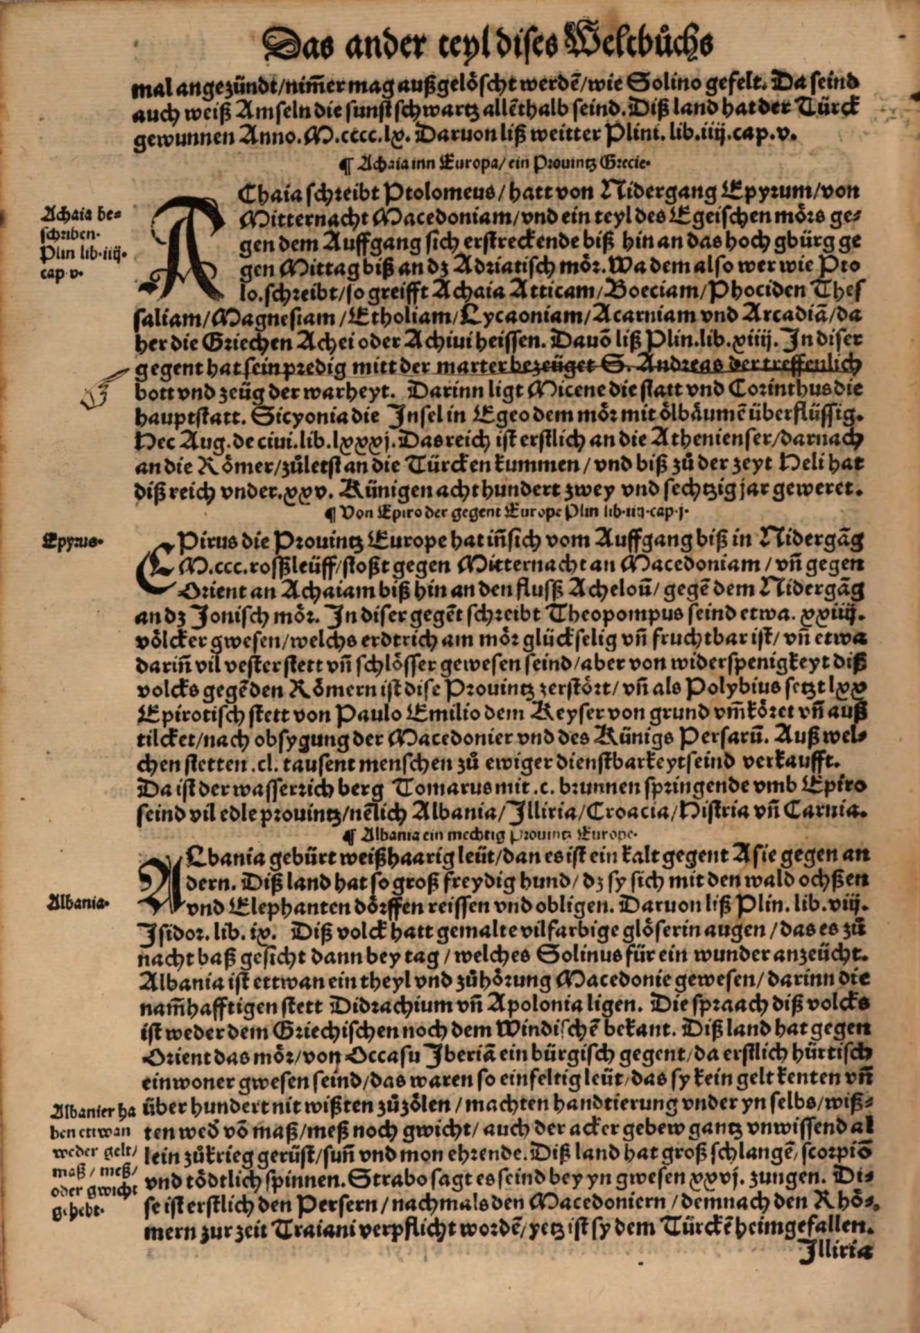 Das ander teyl dises Weltbůchs
mal angezündt/nim̃er mag außgelöscht werdẽ/wie Solino gefelt. Da seind
auch weiß Amseln die sunst schwartz allẽthalb seind. Diß land hat der Türck
gewunnen Anno. M.cccc.lx. Daruon liß weitter Plini. lib.iiij.cap.v.
¶ Achaia inn Europa/ein Prouintz Grecie.
AChaia schreibt Ptolomeus/hatt von Nidergang Epyrum/von
Mitternacht Macedoniam/vnd ein teyl des Egeischen mörs ge⸗
gen dem Auffgang sich erstreckende biß hin an das hoch gbürg ge
gen Mittag biß an dz Adriatisch mör. Wa dem also wer wie Pto
lo.schreibt/so greifft Achaia Atticam/Boeciam/Phociden Thes
saliam/Magnesiam/Etholiam/Lycaoniam/Acarniam vnd Arcadiã/da
her die Griechen Achei oder Achiui heissen. Dauõ liß Plin.lib.xiiij. In diser
gegent hat sein predig mitt der marter bezeüget S. Andreas der treffenlich
bott vnd zeüg der warheyt. Darinn ligt Micene die statt vnd Corinthus die
hauptstatt. Sicyonia die Insel in Egeo dem mör mit ölbäumẽ überflüssig.
Hec Aug. de ciui.lib.lxxxj. Das reich ist erstlich an die Athenienser/darnach
an die Römer/zůletst an die Türcken kummen/vnd biß zů der zeyt Heli hat
diß reich vnder.xxv. Künigen acht hundert zwey vnd sechtzig jar geweret.
Achaia be⸗
schriben.
Plin lib.iiij.
cap v.
¶ Von Epiro der gegent Europe Plin lib.iiij.cap.j.
Epyrus.
EPirus die Prouintz Europe hat iñ sich vom Auffgang biß in Nidergãg
M.ccc.rosßleüff/stoßt gegen Mitternacht an Macedoniam/vñ gegen
Orient an Achaiam biß hin an den flusß Acheloũ/gegẽ dem Nidergãg
an dz Jonisch mör. In diser gegẽt schreibt Theopompus seind etwa. xxiiij.
völcker gwesen/welchs erdtrich am mör glückselig vñ fruchtbar ist/vñ etwa
dariñ vil vester stett vñ schlösser gewesen seind/aber von widerspenigkeyt diß
volcks gegẽ den Römern ist dise Prouintz zerstört/vñ als Polybius setzt lxx
Epirotisch stett von Paulo Emilio dem Keyser von grund vm̃köret vñ auß
tilcket/nach obsygung der Macedonier vnd des Künigs Persarũ. Auß wel⸗
chen stetten .cl. tausent menschen zů ewiger dienstbarkeyt seind verkaufft.
Da ist der wasserrich berg Tomarus mit .c. brunnen springende vmb Epiro
seind vil edle prouintz/nẽlich Albania/Illiria/Croacia/Histria vñ Carnia.
¶ Albania ein mechtig Prouintz Europe.
Albania.
ALbania gebürt weißhaarig leüt/dan es ist ein kalt gegent Asie gegen an
dern. Diß land hat so groß freydig hund/dz sy sich mit den wald ochßen
vnd Elephanten dörffen reissen vnd obligen. Daruon liß Plin. lib.viij.
Isidor. lib. ix. Diß volck hatt gemalte vilfarbige glöserin augen/das es zů
nacht baß gesicht dann bey tag/welches Solinus für ein wunder anzeücht.
Albania ist ettwan ein theyl vnd zůhörung Macedonie gewesen/darinn die
nam̃hafftigen stett Didrachium vñ Apolonia ligen. Die spraach diß volcks
ist weder dem Griechischen noch dem Windischẽ bekant. Diß land hat gegen
Orient das mör/von Occasu Iberiã ein bürgisch gegent/da erstlich hürtisch
einwoner gwesen seind/das waren so einfeltig leüt/das sy kein gelt kenten vñ
über hundert nit wißten zůzölen/machten handtierung vnder yn selbs/wiß⸗
ten wed̃ võ maß/meß noch gwicht/auch der acker gebew gantz vnwissend al
lein zůkrieg gerüst/suñ vnd mon ehrende. Diß land hat groß schlangẽ/scorpiõ
vnd tödtlich spinnen. Strabo sagt es seind bey yn gwesen xxvj. zungen. Di⸗
se ist erstlich den Persern/nachmals den Macedoniern/demnach den Rhö⸗
mern zur zeit Traiani verpflicht wordẽ/yetz ist sy dem Türckẽ heimgefallen.
Albanier ha
ben ettwan
weder gelt/
maß/meß/
oder gwicht
gehebt.
Illiria